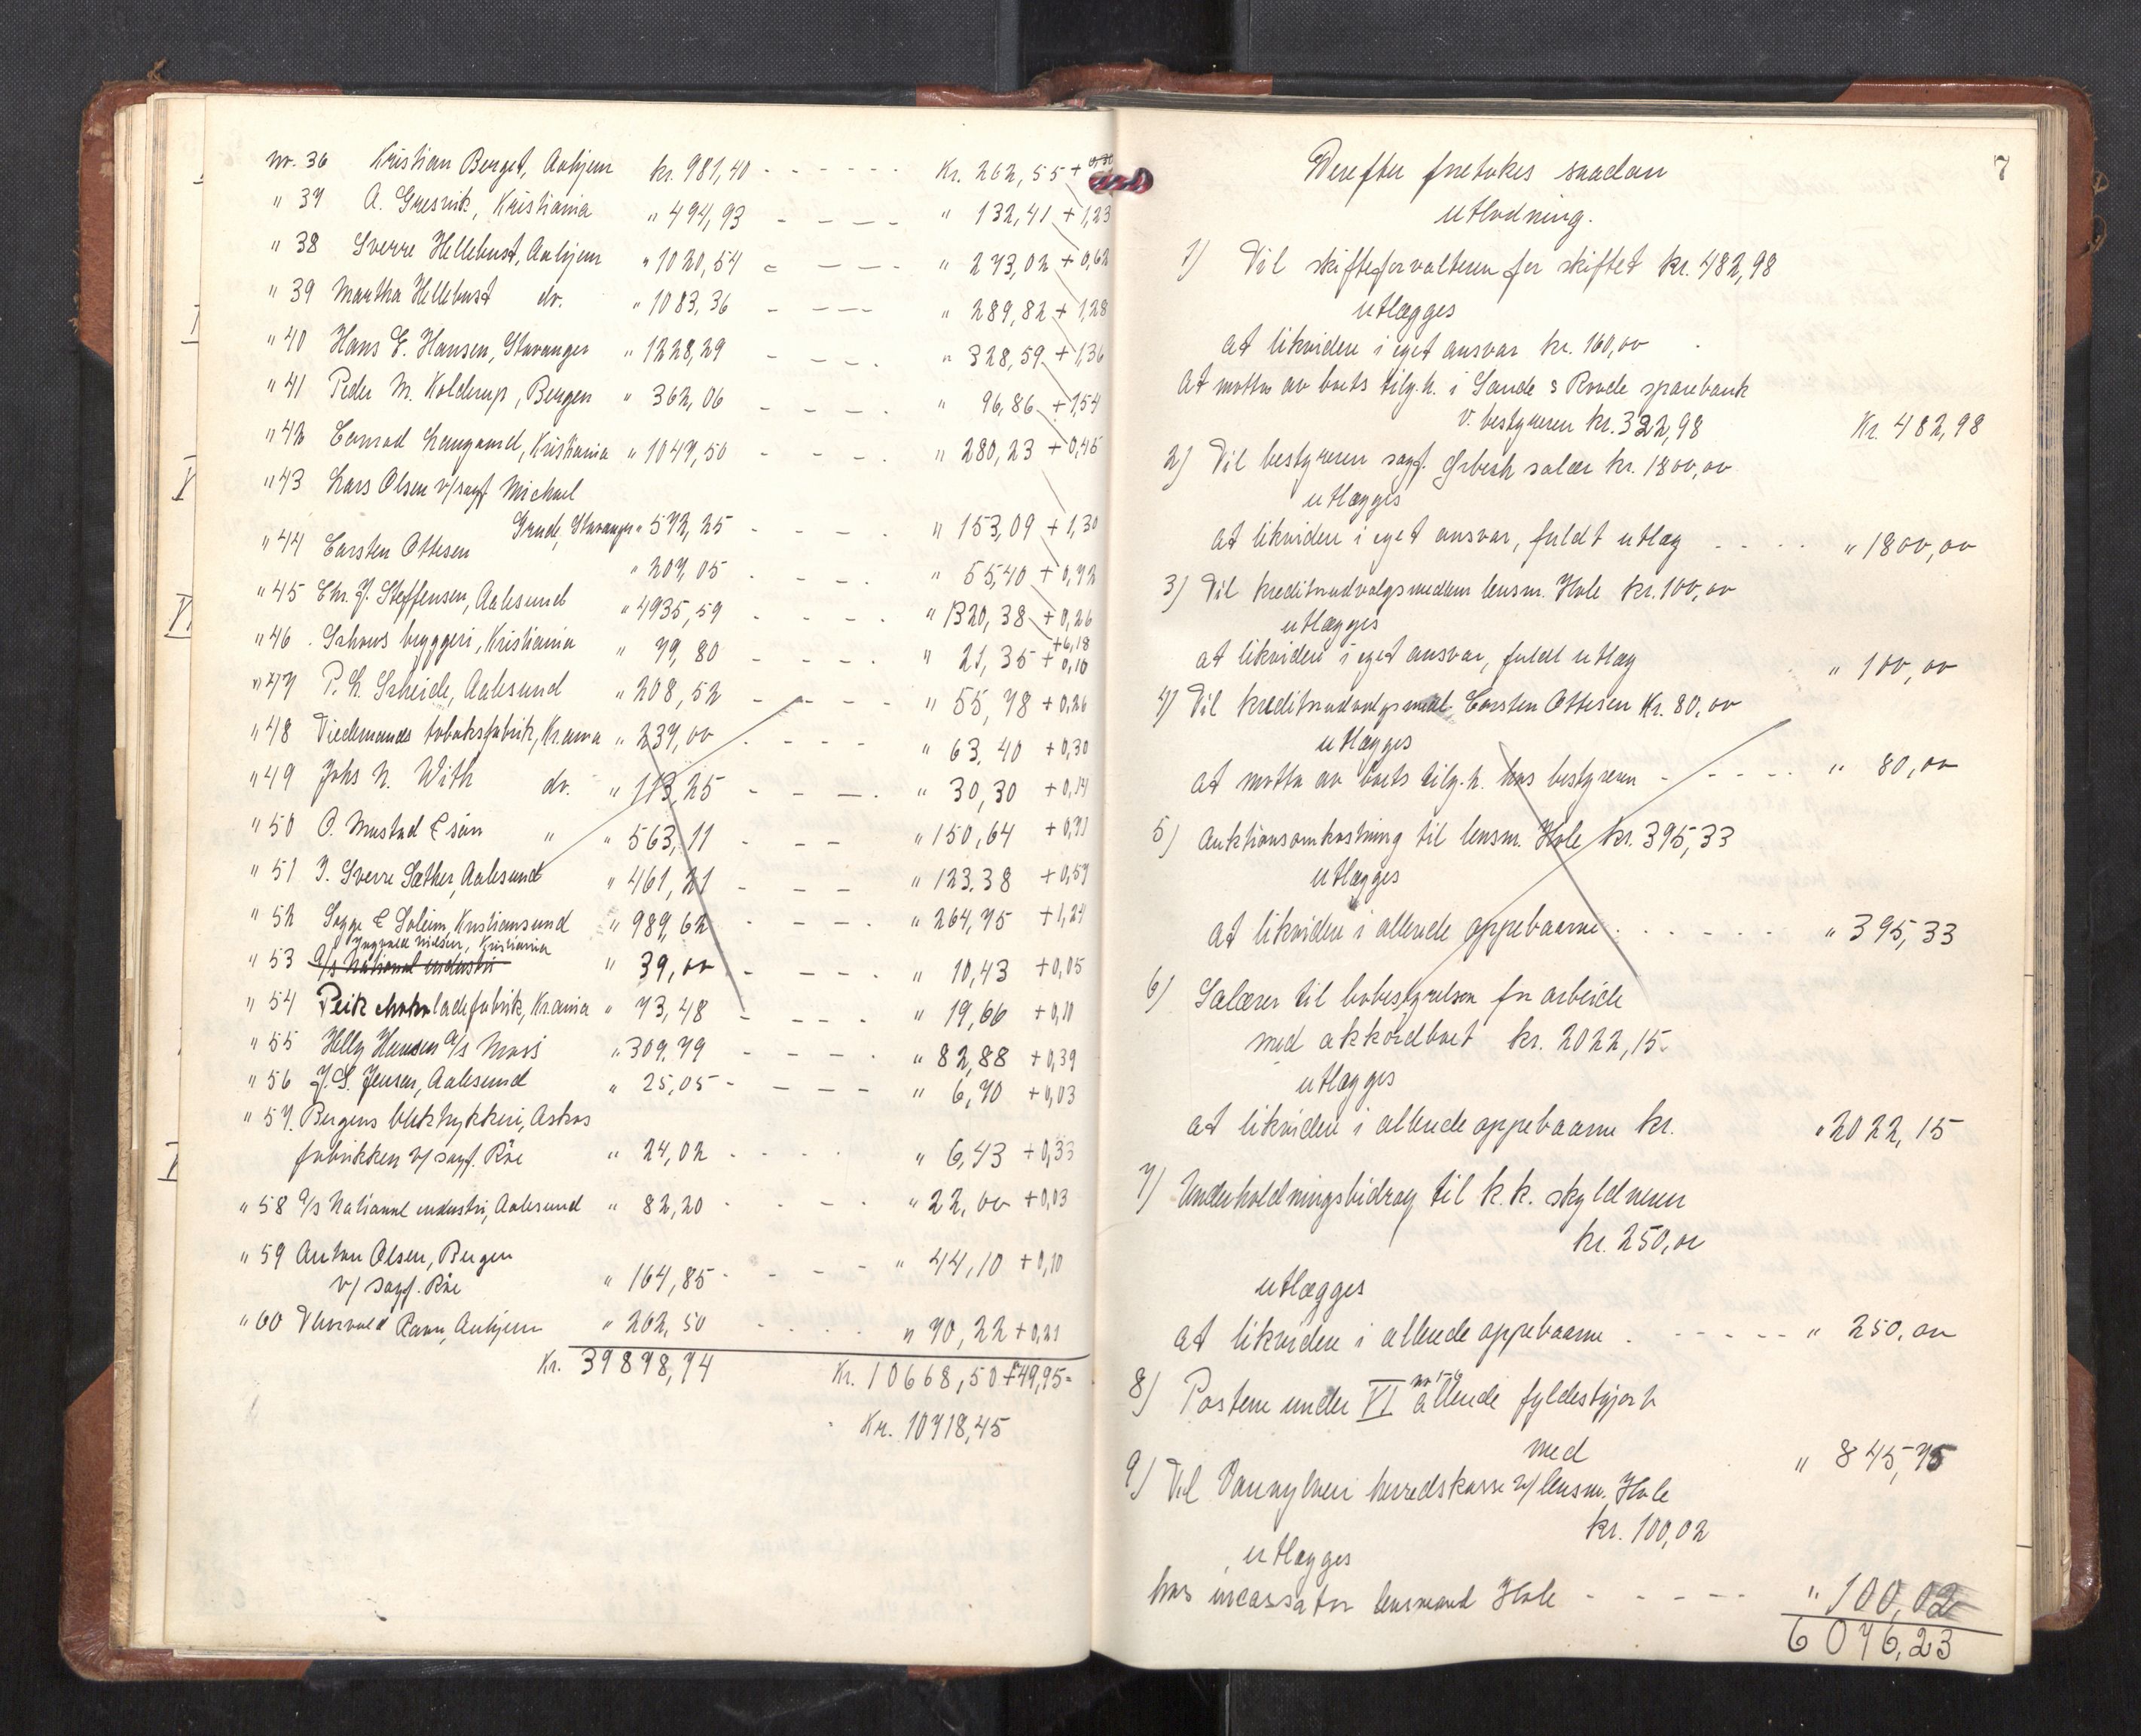 nr. 36 Kristian Berget, Aahjem kr. 981,40 - - - - - - Kr. 262,55 +
" 37 A. Gresvik, Kristiania " 494,93 - - - - " 132,41 + 1,23
" 38 Sverre Hellebust, Aahjem " 1020,54 - - - - " 273,02 + 0,62
" 39 Martha Hellebust do. " 1083,36 - - - - " 289,82 + 1,28
" 40 Hans E. Hansen, Stavanger " 1228,29 - - - . " 328,59 + 1,36
" 41 Peder M. Kolderup, Bergen " 362,06 - - - . " 96,86 + 1,54
" 42 Conrad Langaard, Kristiania " 1047,50 - - - . " 280,23 + 0,45
" 43 Lars Olsen v/ sagf. Michael
Grude, Stavanger " 572,25 - - - . " 153,09 + 1,30
" 44 Carsten Ottesen " 207,05 - - - . " 55,40 + 0,72
" 45 Chr. J. Steffensen, Aalesund " 4935,59 - - - . " 1320,38 + 0,26
+ 6,18
" 46 Schous bryggeri, Kristiania " 79,80 - - - . " 21,35 + 0,10
" 47 P. L. Scheide, Aalesund " 208,52 - - - - " 55,78 + 0,26
" 48 Tiedemands tobaksfabrik, Kr.ania " 237,00 - - - - " 63,40 + 0,30
" 49 Johs N. With do. " 113,25 - - - . " 30,30 + 0,14
" 50 O. Mustad & søn " " 563,11 - - - " 150,64 + 0,71
" 51 I. Sverre Sæther, Aalesund " 461,21 - - - " 123,38 + 0,57
" 52 Sogge & Soleim, Kristiansund " 989,62 - - - . " 264,75 + 1,24
Ingvald Nielsen, Kristiania
" 53 a/s National industri " 39,00 - - - . " 10,43 + 0,05
" 54 Peik chokoladefabrik, Kr.ania " 73,48 - - - . " 19,66 + 0,10
" 55 Helly Hansen a/s Moss " 309,79 - - - - " 82,88 + 0,39
" 56 J. S. Jensen, Aalesund " 25,05 - - - - " 6,70 + 0,03
" 57. Bergens bliktrykkeri, Askøs
fabrikken v/ sagf. Røe " 24,02 - - - . " 6,43 + 0,33
" 58 a/s National industri, Aalesund " 82,20 - - - . " 22,00 + 0,03
" 59 Anton Olsen, Bergen
v/ sagf. Røe " 164,85 - - - - " 44,10 + 0,10
" 60 Thorvald Ravn, Aahjem " 262,50 - - - . " 70,22 + 0,21
Kr. 39898,74 Kr. 10668,50 + 49,95 =
Kr. 10718,45
7
Derefter foretokes saadan
utlodning.
1) Til skifteforvalteren for skiftet kr. 482,98
utlægges
at likvidere i eget ansvar kr. 160,00
at motta av boets tilg.h. i Sande & Rovde sparebank
v. bestyreren kr. 322,98 Kr. 482,98
2) Til bestyreren sagf. Ørbech salær kr. 1800,00
utlægges
at likvidere i eget ansvar, fuldt utlæg - - - . " 1800,00
3) Til kreditorudvalgsmedlem lensm. Hole kr. 100,00
utlægges
at likvidere i eget ansvar, fuldt utlæg " 100,00
4) Til kreditorudvalgsmedl. Carsten Ottesen Kr. 80,00
utlægges
at motta av boets tilg.h. hos bestyreren - - - - . " 80,00
5) Auktionsomkostning til lensm. Hole kr. 395,33
utlægges
at likvidere i allerede oppebaarne . - - - - - " 395,33
6) Salærer til bobestyrelsen for arbeide
med akkordboet kr. 2022,15.
utlægges
at likvidere i allerede oppebaarne kr. " 2022,15
7) Underholdningsbidrag til k.k. skyldneren
kr. 250,00
utlægges
at likvidere i allerede oppebaarne . - - - - - " 250,00
nr 1-6
8) Postene under VI allerede fyldestgjort
med " 845,75
9) Til Vannylven herredskasse v/ lensm. Hole
kr. 100,02
utlægges
hos incassator lensmand Hole - - - - - " 100,02
6076,23